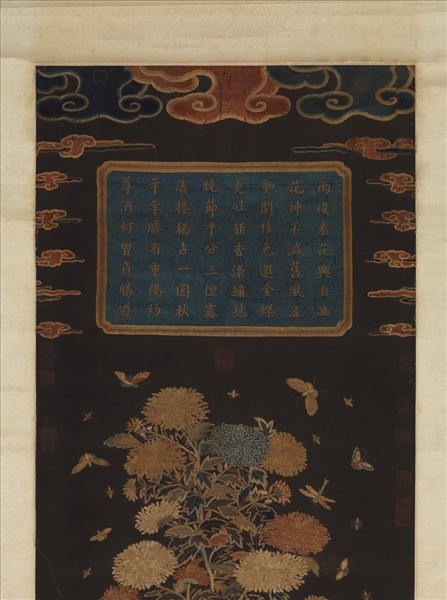 雨後看花興自幽
花神不減舊風流
重開佳色邀金蝶
更吐新香滾繡毬
晚節平分三徑露
清標獨占一園秋
年年勝有重陽約
尊酒何曾負勝遊